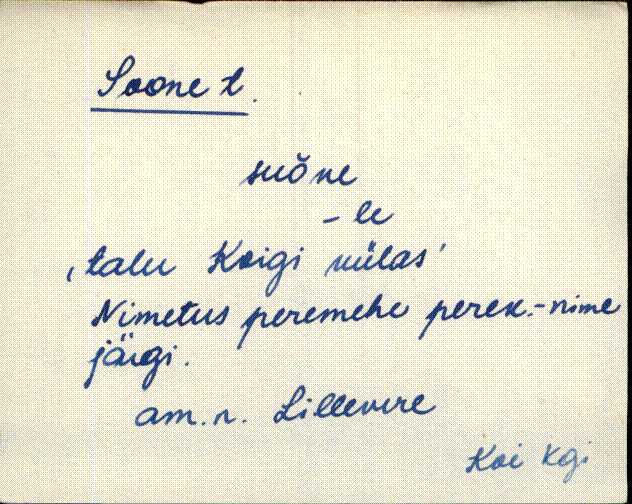 Soone t.
suõne
- le
'talu Koigi külas'
Nimetus peremehe perek.-nime
järgi.
am.n. Lillevere
Koi Kgi